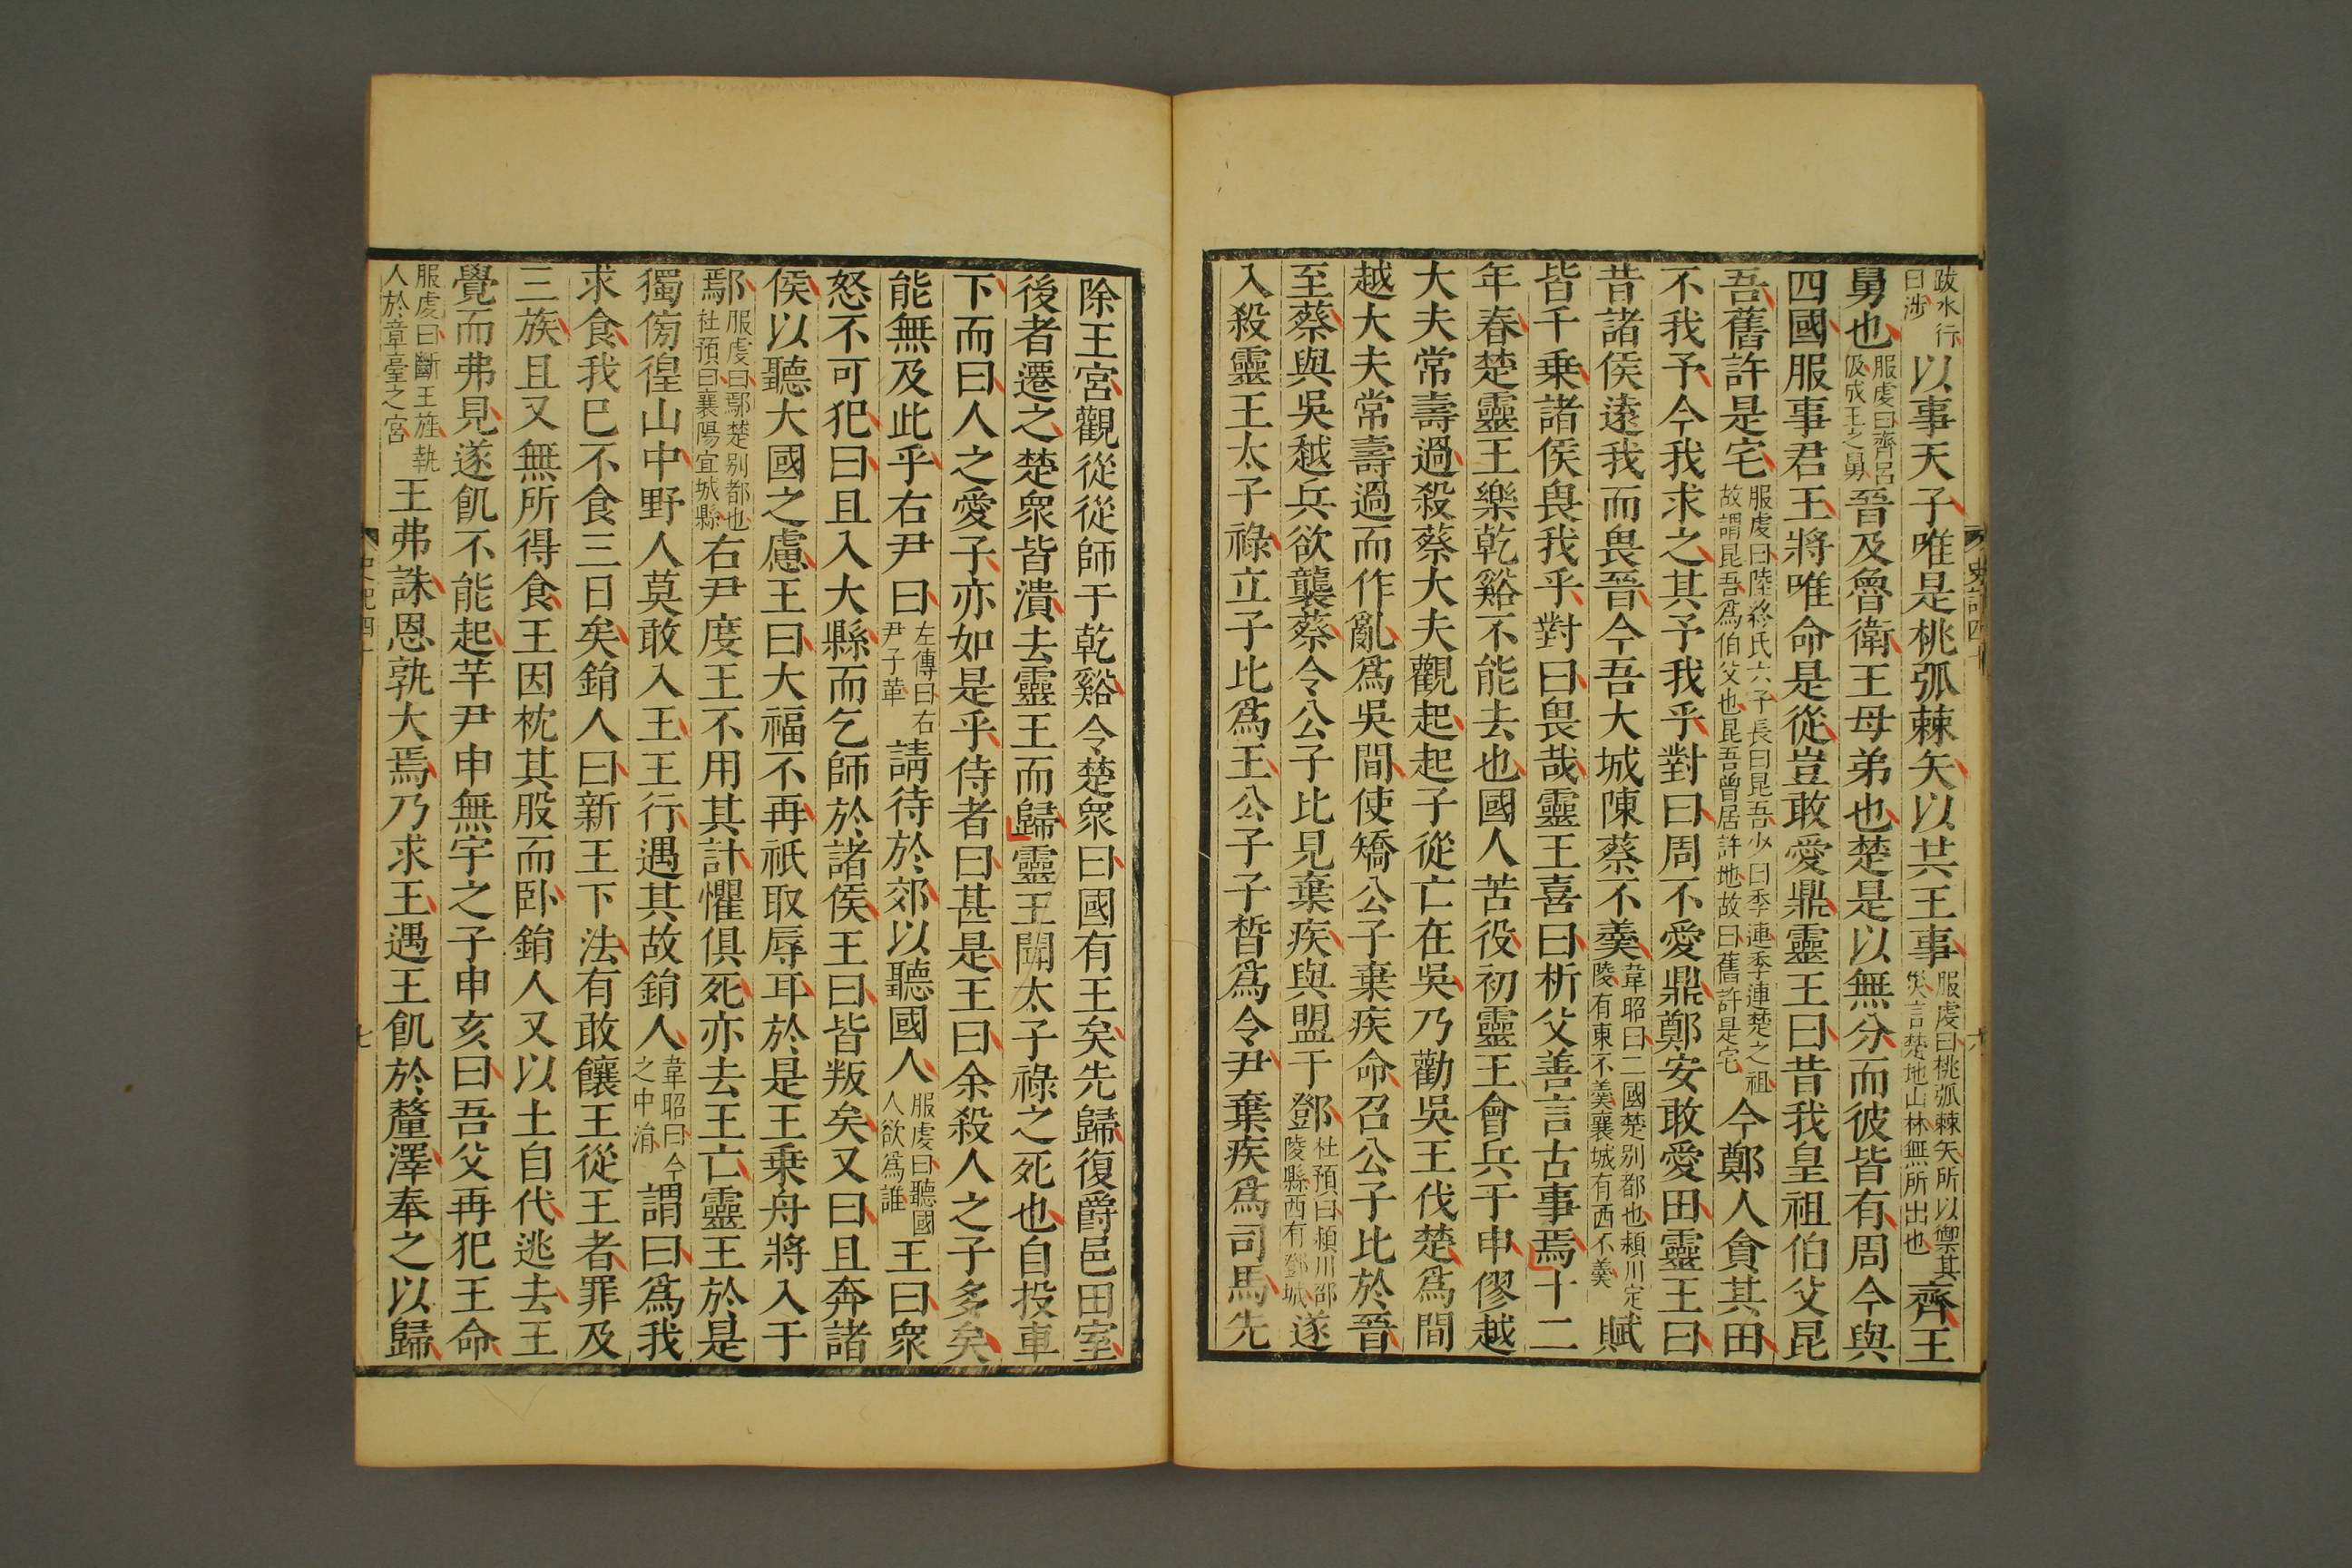 跋水行曰涉以事天子唯是桃弧棘矢以共王事服虔曰桃弧棘矢所以禦其災言楚地山林無所出也齊王
舅也服虔曰齊呂伋成王之舅晉及魯衛王母弟也楚是以無分而彼皆有周今與
四國服事君王將唯命是從豈敢愛鼎靈王曰昔我皇祖伯父昆
吾舊許是宅服虔曰陸終氏六子長曰昆吾少曰季連季連楚之祖故謂昆吾爲伯父也昆吾曾居許地故曰舊許是宅今鄭人貪其田
不我予今我求之其予我乎對曰周不愛鼎鄭安敢愛田靈王曰
昔諸侯遠我而畏晉今吾大城陳蔡不羹韋昭曰二國楚别都也潁川定陵有東不羹襄城有西不羹賦
皆千乗諸侯畏我乎對曰畏哉靈王喜曰析父善言古事焉十二
年春楚靈王樂乾谿不能去也國人苦役初靈王會兵于申僇越
大夫常壽過殺蔡大夫觀起起子從亡在吳乃勸吳王伐楚爲間
越大夫常壽過而作亂爲吳間使矯公子棄疾命召公子比於晉
至蔡與吳越兵欲襲蔡令公子比見棄疾與盟于鄧杜預曰潁川邵陵縣西有鄧城遂
入殺靈王太子祿立子比爲王公子子晳爲令尹棄疾爲司馬先
史記四十
六
除王宮觀從從師于乾谿令楚衆曰國有王矣先歸復爵邑田室
後者遷之楚衆皆潰去靈王而歸靈王聞太子祿之死也自投車
下而曰人之愛子亦如是乎侍者曰甚是王曰余殺人之子多矣
能無及此乎右尹曰左傳曰右尹子革請待於郊以聽國人服虔曰聽國人欲爲誰王曰衆
怒不可犯曰且入大縣而乞師於諸侯王曰皆叛矣又曰且奔諸
侯以聽大國之慮王曰大福不再祇取辱耳於是王乗舟將入于
鄢服虔曰鄢楚别都也杜預曰襄陽宜城縣右尹度王不用其計懼俱死亦去王亡靈王於是
獨傍徨山中野人莫敢入王王行遇其故鋗人韋昭曰今之中涓謂曰爲我
求食我巳不食三日矣鋗人曰新王下法有敢饟王從王者罪及
三族且又無所得食王因枕其股而卧鋗人又以土自代逃去王
覺而弗見遂飢不能起芋尹申無宇之子申亥曰吾父再犯王命
服虔曰斷王旌執人於章臺之宮王弗誅恩孰大焉乃求王遇王飢於釐澤奉之以歸
史記四十
七